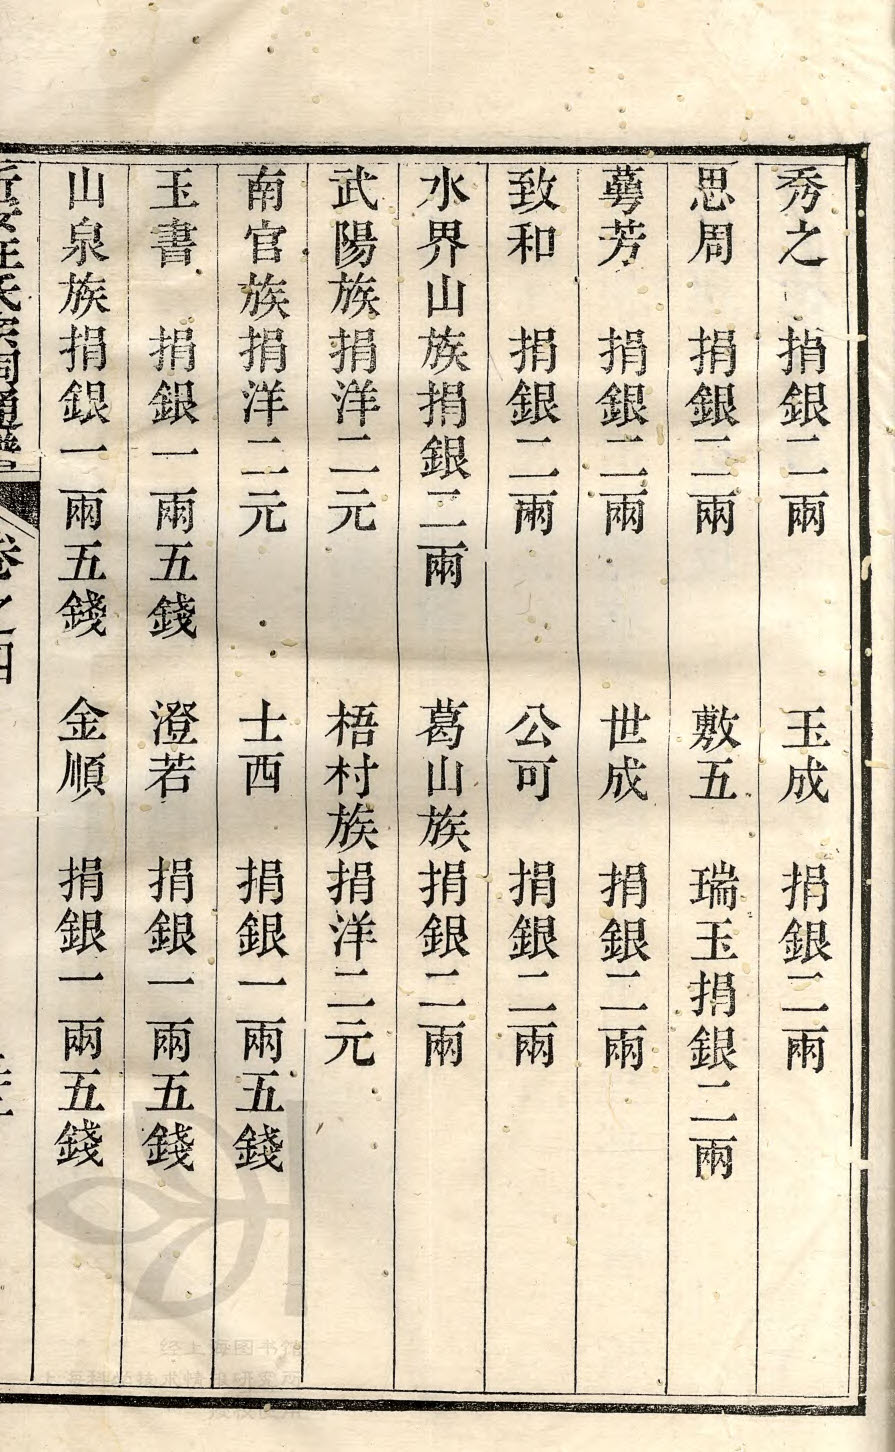 秀之　捐銀二兩　玉成　捐銀二兩
思周　捐銀二兩　敷五　瑞玉捐銀二兩
蕚芳　捐銀二兩　世成　捐銀二兩
致和　捐銀二兩　公可　捐銀二兩
水界山族捐銀二兩　葛山族捐銀二兩
武陽族捐洋二元　梧村族捐洋二元
南官族捐洋二元　士西　捐銀一兩五錢
玉書　捐銀一兩五錢　澄若　捐銀一兩五錢
山泉族捐銀一兩五錢　金順　捐銀一兩五錢
汪氏宗祠通譜　卷之四
经上海图书馆
上海科学技术情报研究所